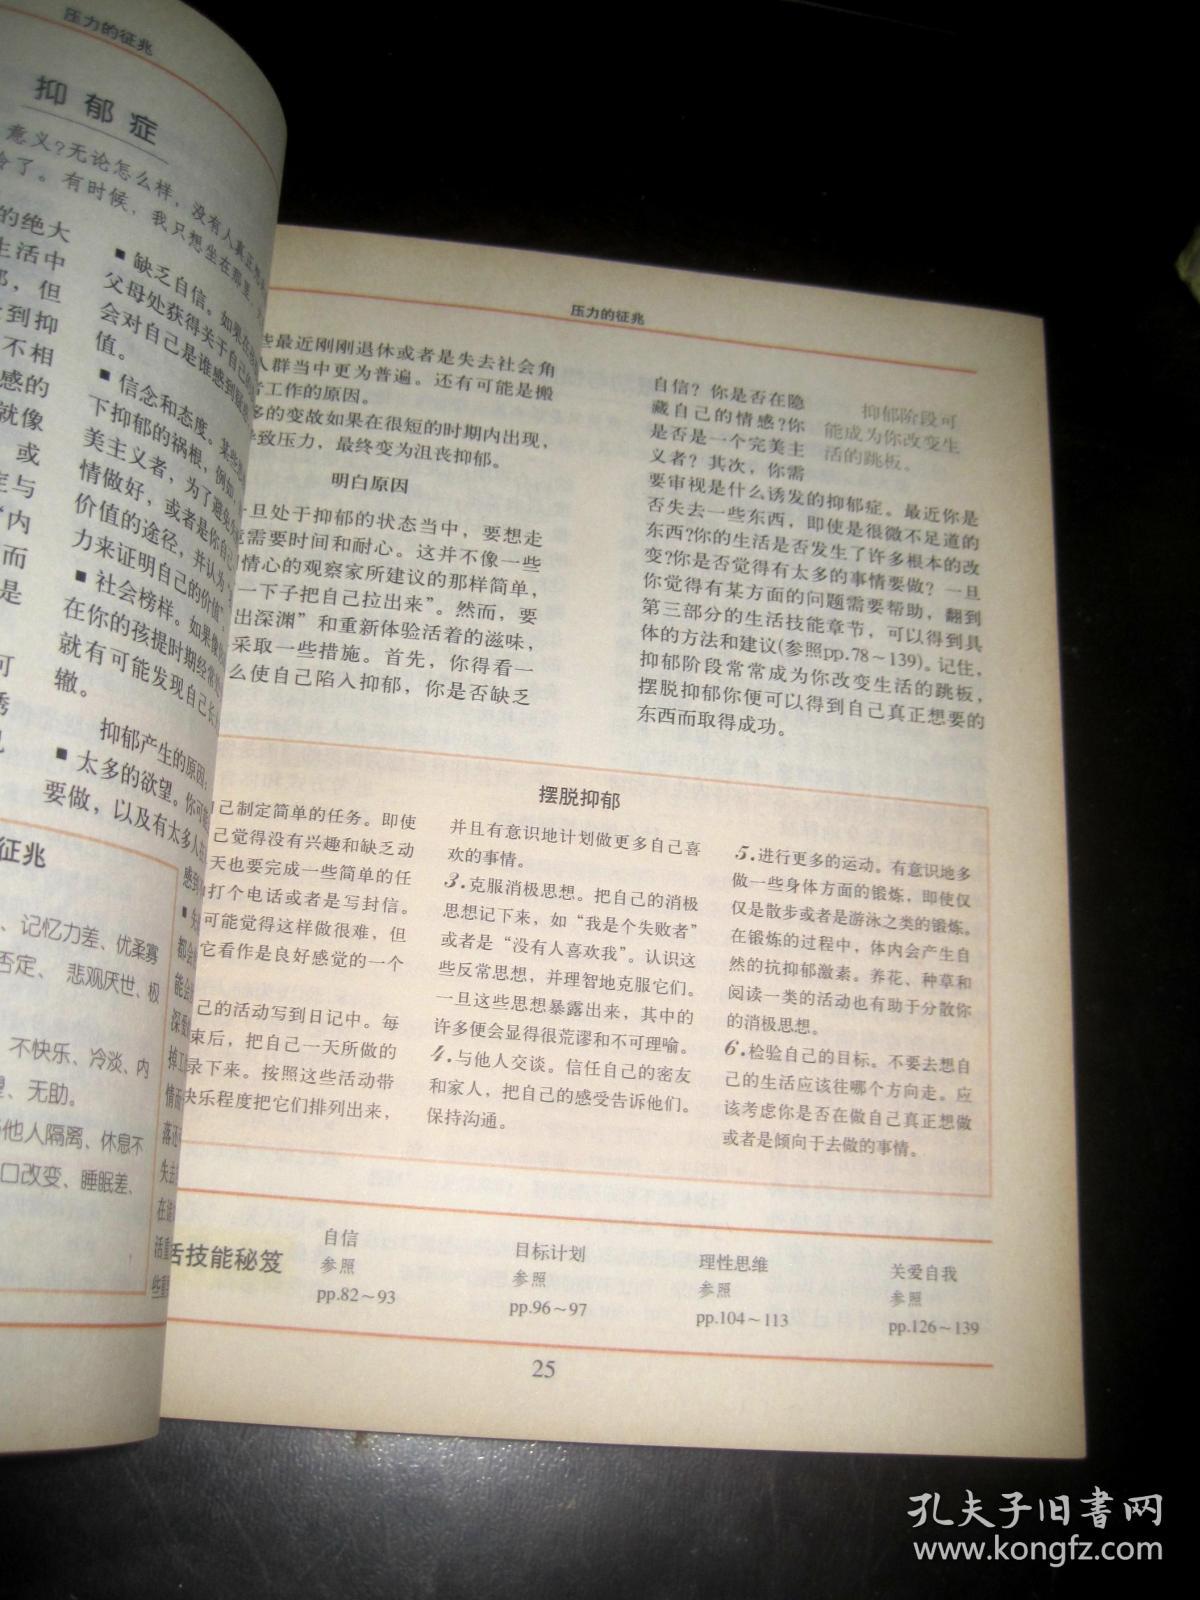 压力的征兆
抑郁症
意义?无论怎么样，没有人真正想
冷了。有时候，我只想坐在那里，
的绝大
生活中
郁，但
到抑
不相
感的
就像
或
症与
“内
而
是
可
诱
■ 缺乏自信。如果在
父母处获得关于自己
会对自己是谁感到
值。
■ 信念和态度。某些
下抑郁的祸根，例如，
美主义者，为了避免
情做好，或者是你自己
价值的途径，并认为
力来证明自己的价值
■ 社会榜样。如果像
在你的孩提时期经常
就有可能发现自己长
辙。
抑郁产生的原因：
■ 太多的欲望。你可能
要做，以及有太多人在
征兆
、记忆力差、优柔寡
否定、悲观厌世、极
不快乐、冷淡、内
望、无助。
与他人隔离、休息不
口改变、睡眠差、
感到
都会
能会
深爱
掉工
情面
落还
失去
在这
活重
些重
压力的征兆
些最近刚刚退休或者是失去社会角
人群当中更为普遍。还有可能是搬
者工作的原因。
多的变故如果在很短的时期内出现，
导致压力，最终变为沮丧抑郁。
明白原因
一旦处于抑郁的状态当中，要想走
需要时间和耐心。这并不像一些
情心的观察家所建议的那样简单，
一下子把自己拉出来”。然而，要
出深渊”和重新体验活着的滋味，
采取一些措施。首先，你得看一
么使自己陷入抑郁，你是否缺乏
自信？你是否在隐
藏自己的情感?你
是否是一个完美主
义者？其次，你需
要审视是什么诱发的抑郁症。最近你是
否失去一些东西，即使是很微不足道的
东西?你的生活是否发生了许多根本的改
变?你是否觉得有太多的事情要做？一旦
你觉得有某方面的问题需要帮助，翻到
第三部分的生活技能章节，可以得到具
体的方法和建议(参照pp.78～139)。记住，
抑郁阶段常常成为你改变生活的跳板，
摆脱抑郁你便可以得到自己真正想要的
东西而取得成功。
抑郁阶段可
能成为你改变生
活的跳板。
摆脱抑郁
己制定简单的任务。即使
己觉得没有兴趣和缺乏动
天也要完成一些简单的任
打个电话或者是写封信。
可能觉得这样做很难，但
它看作是良好感觉的一个
己的活动写到日记中。每
束后，把自己一天所做的
录下来。按照这些活动带
快乐程度把它们排列出来，
并且有意识地计划做更多自己喜
欢的事情。
3.克服消极思想。把自己的消极
思想记下来，如“我是个失败者”
或者是“没有人喜欢我”。认识这
些反常思想，并理智地克服它们。
一旦这些思想暴露出来，其中的
许多便会显得很荒谬和不可理喻。
4.与他人交谈。信任自己的密友
和家人，把自己的感受告诉他们。
保持沟通。
5.进行更多的运动。有意识地多
做一些身体方面的锻炼，即使仅
仅是散步或者是游泳之类的锻炼。
在锻炼的过程中，体内会产生自
然的抗抑郁激素。养花、种草和
阅读一类的活动也有助于分散你
的消极思想。
6.检验自己的目标。不要去想自
己的生活应该往哪个方向走。应
该考虑你是否在做自己真正想做
或者是倾向于去做的事情。
活技能秘笈
自信
参照
pp.82～93
目标计划
参照
pp.96～97
理性思维
参照
pp.104～113
关爱自我
参照
pp.126～139
25
孔夫子旧书网
www.kongfz.com